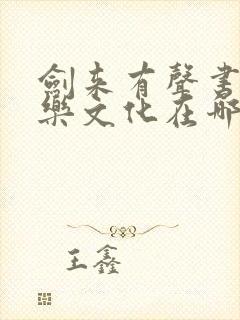 劍来有聲書
樂文化在哪
王鑫